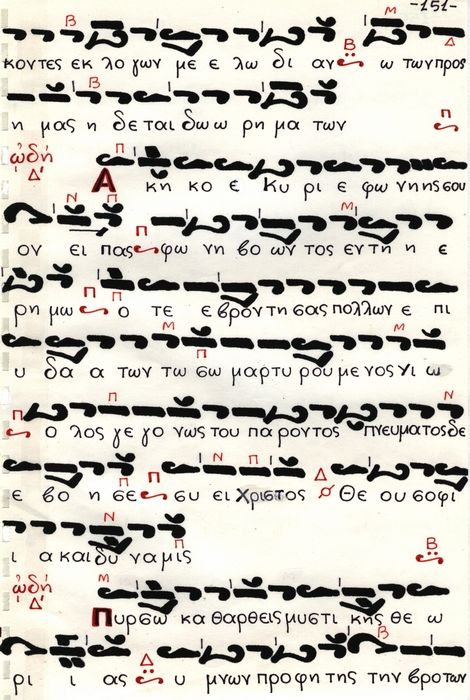 -151-
κοντες εκ λο γων με ε λω δι αν ω των προς
η μας η δε ται δω ω ρη μα των
ᾠδή Δ΄
Α κη κο ε Κυ ρι ε φω νη ης σου
ον ει πας φω νη βο ων τος εν τη η ε
ρη μω ο τε ε βρον τη σας πολλων ε πι
υ δα α των τω σω μαρτυ ρου με νος γι ω
ο λος γε γο νως του πα ρον τος πνευμα τος δε
ε βο η σε συ ει Χριστος Θε ου σοφι
ι α και δυ να μις
ᾠδή Δ΄
Πυρσω κα θαρθεις μυστι κης θε ω
ρι ι ας υ μνων προφη της την βροτων